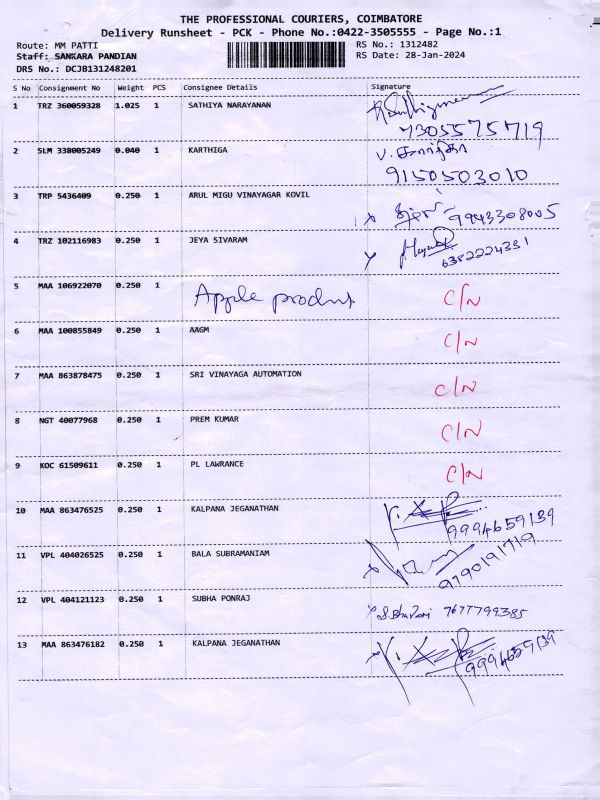 THE PROFESSIONAL COURIERS, COIMBATORE
Delivery Runsheet - PCK - Phone No.:0422-3505555 - Page No.:1
Route: MM PATTI RS No.: 1312482
Staff: SANKARA PANDIAN RS Date: 28-Jan-2024
DRS No.: DCJB131248201
S No Consignment No Weight PCS Consignee Details Signature
1 TRZ 360059328 1.025 1 SATHIYA NARAYANAN
7305575719
2 SLM 338005249 0.040 1 KARTHIGA
9150503010
3 TRP 5436409 0.250 1 ARUL MIGU VINAYAGAR KOVIL
9943308005
4 TRZ 102116983 0.250 1 JEYA SIVARAM
6382224331
5 MAA 106922070 0.250 1 Apple product C/N
6 MAA 100855849 0.250 1 AAGM C/N
7 MAA 863878475 0.250 1 SRI VINAYAGA AUTOMATION C/N
8 NGT 40077968 0.250 1 PREM KUMAR C/N
9 KOC 61509611 0.250 1 PL LAWRANCE C/N
10 MAA 863476525 0.250 1 KALPANA JEGANATHAN
9994659139
11 VPL 404026525 0.250 1 BALA SUBRAMANIAM
9790191719
12 VPL 404121123 0.250 1 SUBHA PONRAJ 7677799385
13 MAA 863476182 0.250 1 KALPANA JEGANATHAN
9994659139